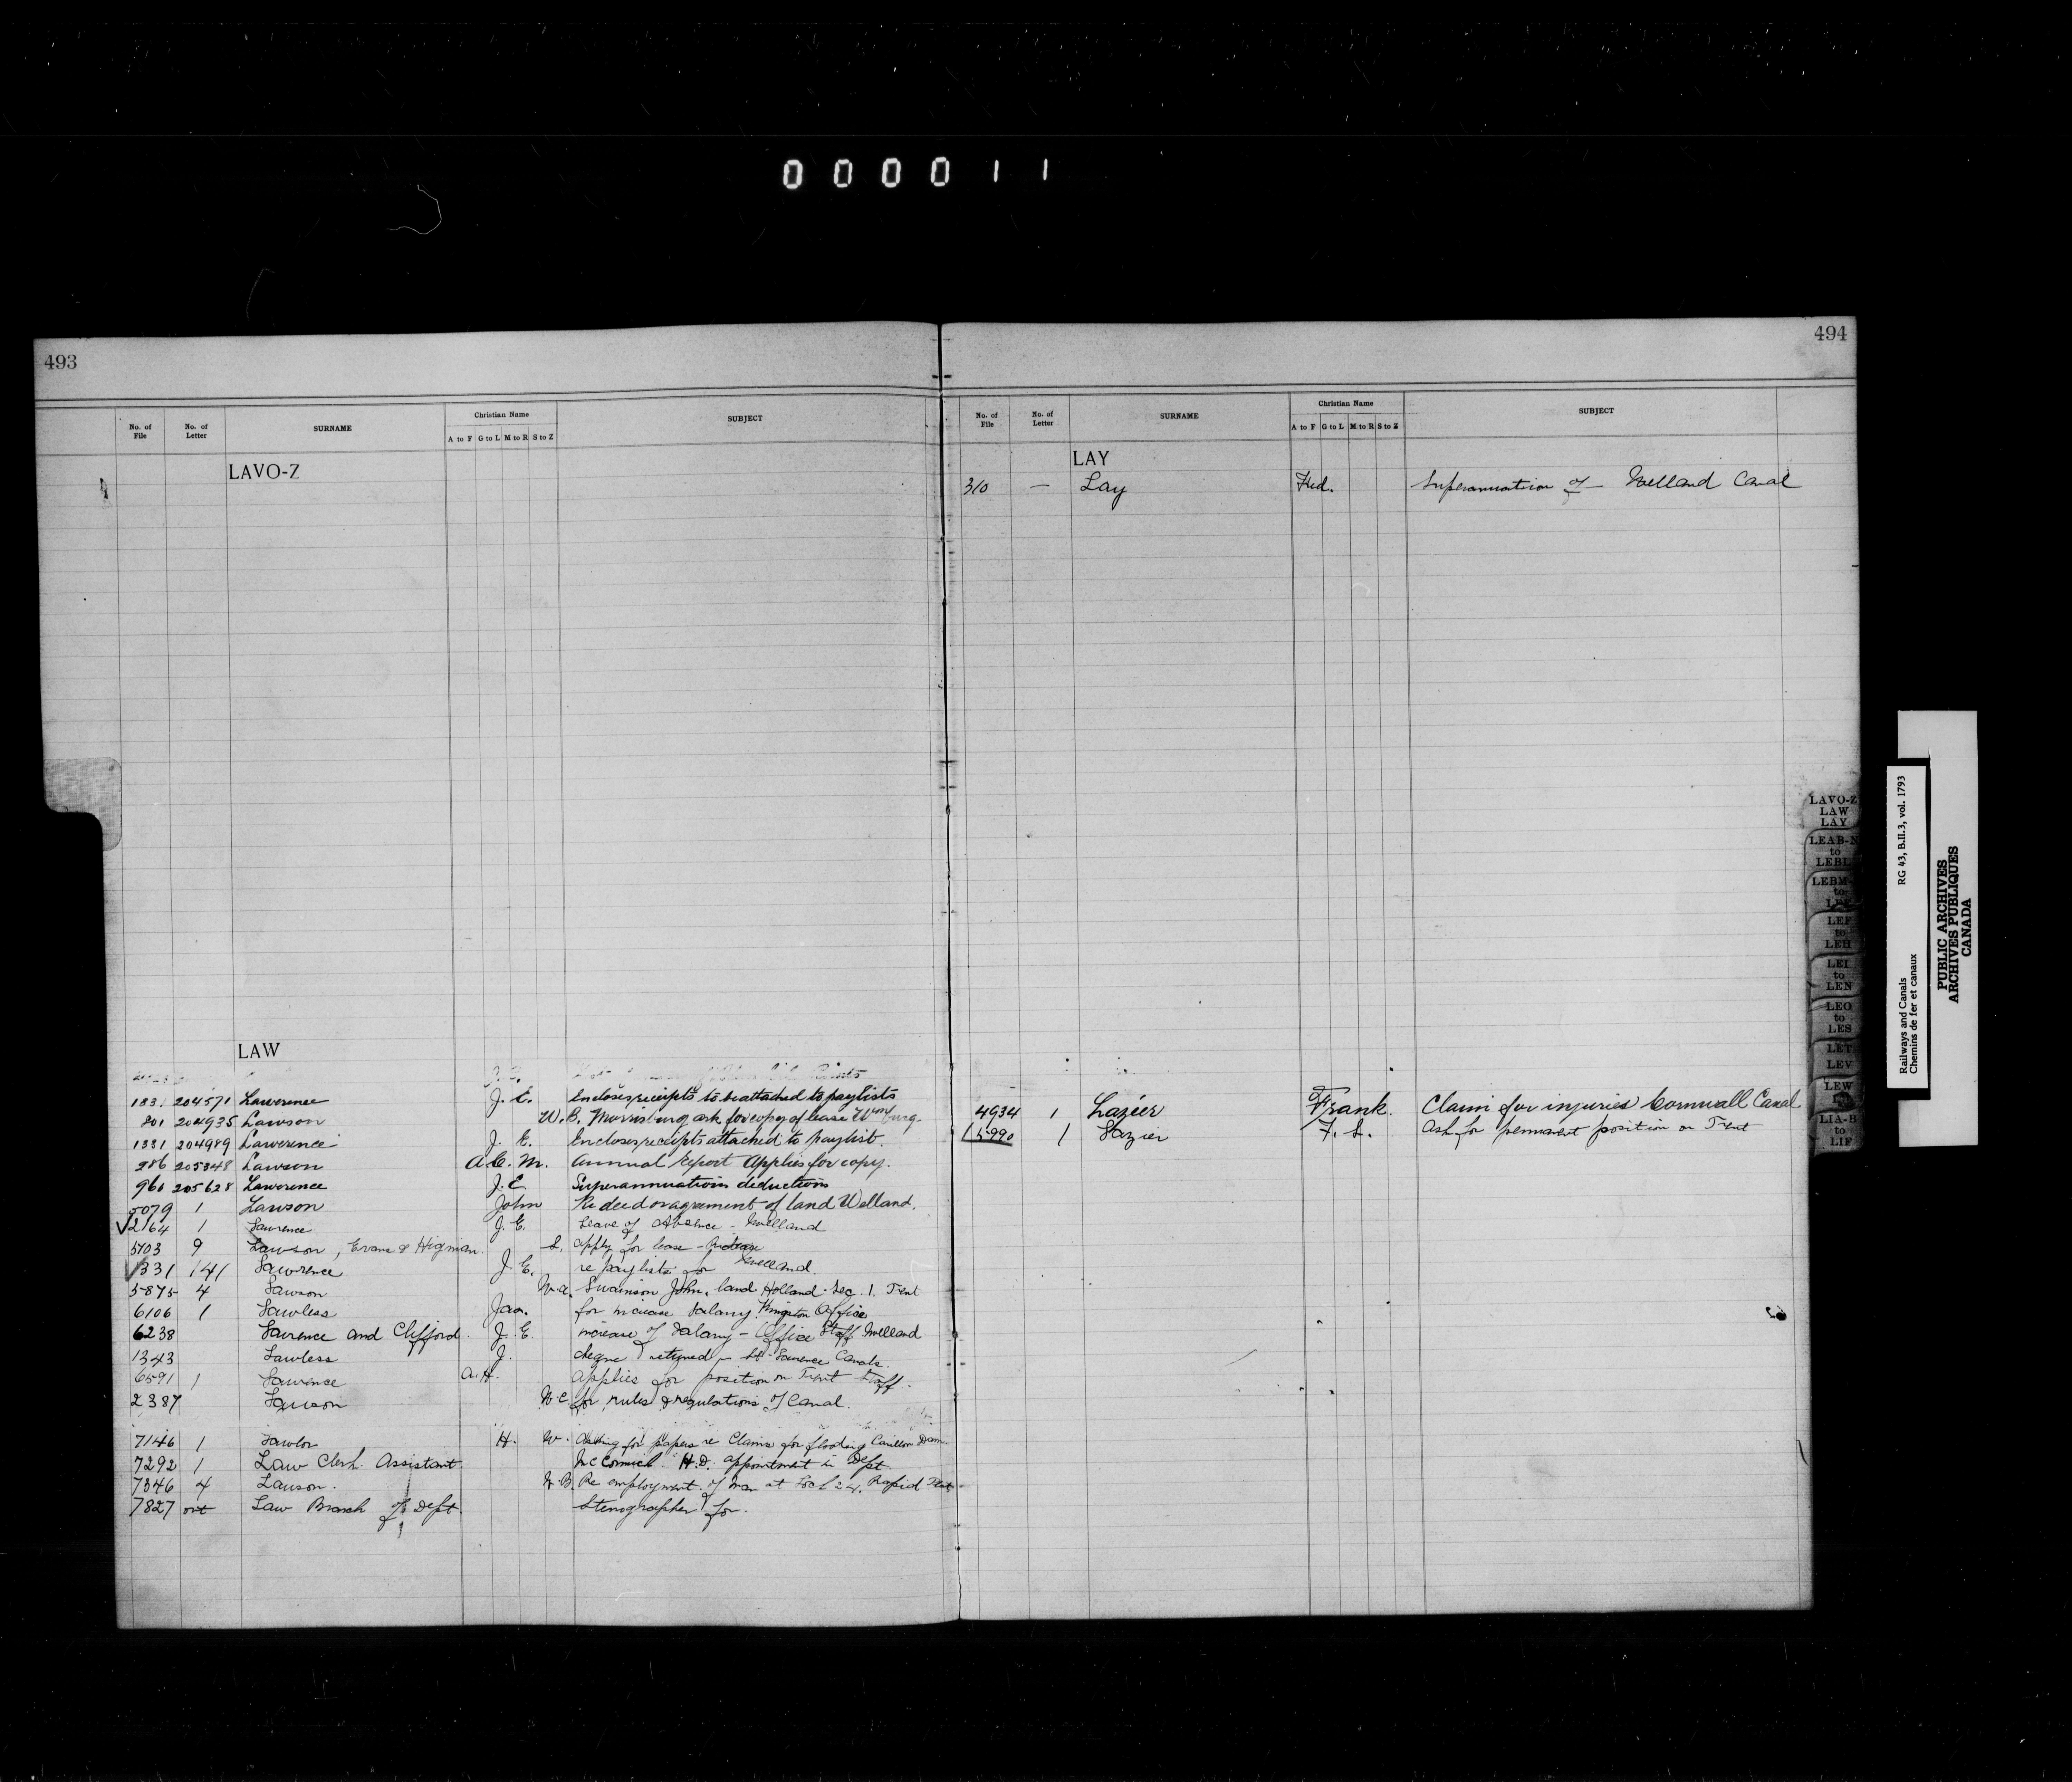 000011
493
No. of File No. of Letter SURNAME Christian Name A to F G to L M to R S to Z SUBJECT
LAVO-Z
LAW
1331 204571 Lawerence J. E. Encloses receipts to be attached to paylists
801 204935 Lawson W. B. Morrisburg ask for copy of lease Wmsburg.
1331 204989 Lawerence J. E. Encloses receipts attached to paylist.
286 205348 Lawson A. C. M. Annual Report Applies for copy.
960 205628 Lawerence J. E. Superannuation deductions
5079 1 Lawson John Re deed or agrement of land Welland.
√2164 1 Lawrence J. E. Leave of Absence - Welland
5703 9 Lawson, Evans & Higman S. apply for lease -
1331 141 Lawrence J. E. re paylists for Welland.
5875 4 Lawson W. A. Swainson John, land Holland - Sec. 1. Trent
6106 1 Lawless Jas. for increase salary Kingston Office
6238 Lawrence and Clifford. J. E. increase of Salary - Office Staff Welland
1343 Lawless J. cheque returned - St Lawrence Canals.
6591 1 Lawrence A. H. applies for position on Trent Staff.
2387 Lawson W. C. for rules & regulations of Canal.
7146 1 Lawlor H. W. Asking for papers re Claims for flooding Carillon Dam
7292 1 Law Clerk Assistant McCormick H. D. appointment in Dept
7346 4 Lawson. W. B. Re employment of man at Lock 24, Rapid Plat
7827 out Law Branch of Dept. Stenographer for.
494
No. of File No. of Letter SURNAME Christian Name A to F G to L M to R S to Z SUBJECT
LAY
310 — Lay Fred. Superannuation of - Welland Canal
4934 1 Lazier Frank. Claim for injuries Cornwall Canal
5990 1 Lazier F. S. Ask for permanent position on Trent
LAVO-Z
LAW
LAY
LEAB-N
to
LEBL
LEBM-
to
LEF
to
LEH
LEI
to
LEN
LEO
to
LES
LET
LEV
LEW
LIA-B
to
LIF
Railways and Canals RG 43, B.II.3, vol. 1793
Chemins de fer et canaux
PUBLIC ARCHIVES
ARCHIVES PUBLIQUES
CANADA